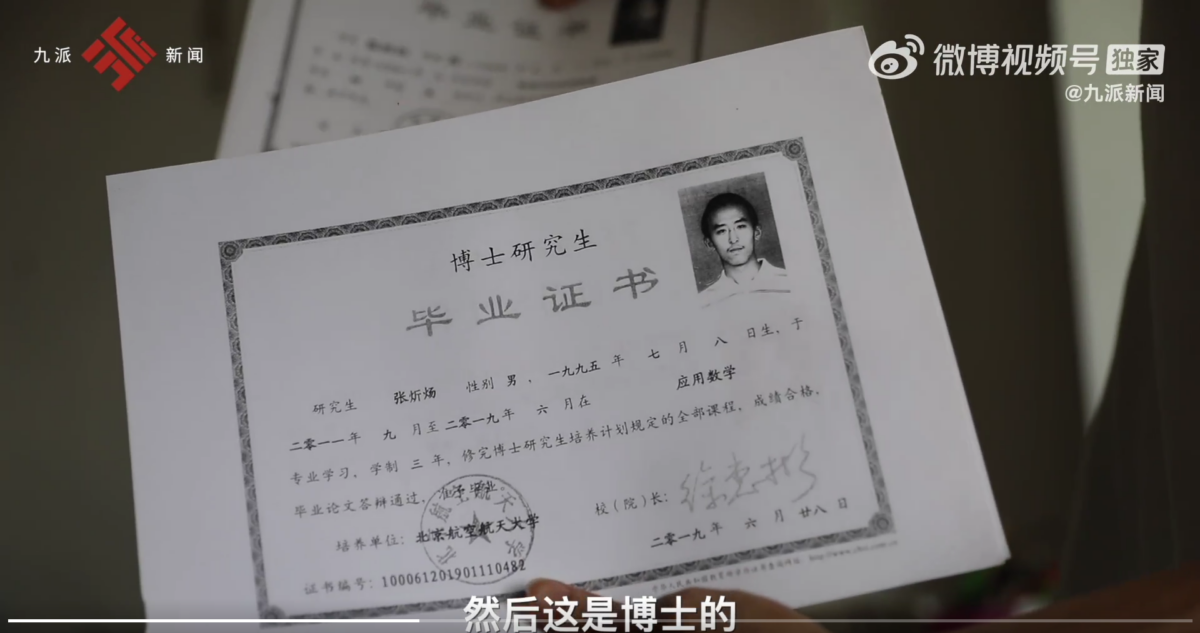 九派 新闻
微博视频号 独家
@九派新闻
毕业证书
博士研究生
毕业证书
研究生 张炘炀 性别 男，一九九五 年 七 月 八 日生，于
二〇一一 年 九 月至 二〇一九 年 六 月在 应用数学
专业学习，学制 三 年，修完博士研究生培养计划规定的全部课程，成绩合格，
毕业论文答辩通过，准予毕业
培养单位：北京航空航天大学
校（院）长：徐惠彬
证书编号：100061201901110482
二〇一九 年 六 月 廿八 日
然后这是博士的